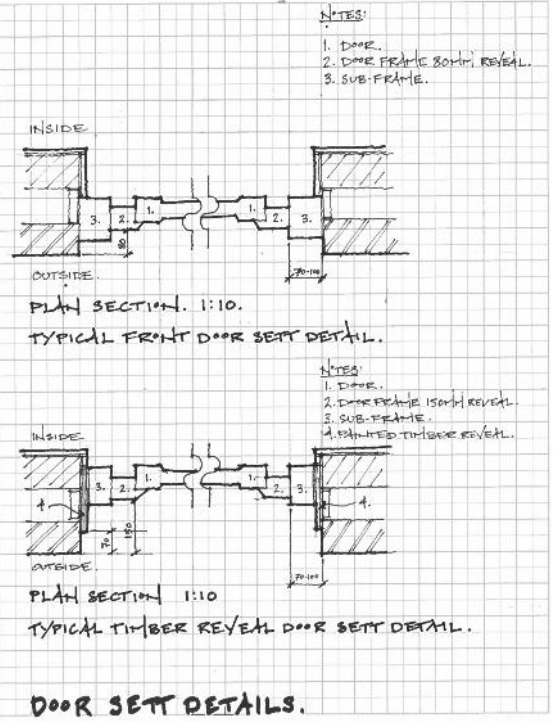 NOTES:
1. DOOR.
2. DOOR FRAME 80mm REVEAL.
3. SUB-FRAME.
INSIDE
3. 2. 1. 1. 2. 3.
80
OUTSIDE.
70-100
PLAN SECTION. 1:10.
TYPICAL FRONT DOOR SETT DETAIL.
NOTES:
1. DOOR.
2. DOOR FRAME 150mm REVEAL.
3. SUB-FRAME.
4. PAINTED TIMBER REVEAL.
INSIDE
3. 2. 1. 1. 2. 3.
4. 4.
70 150
OUTSIDE.
70-100
PLAN SECTION 1:10
TYPICAL TIMBER REVEAL DOOR SETT DETAIL.
DOOR SETT DETAILS.